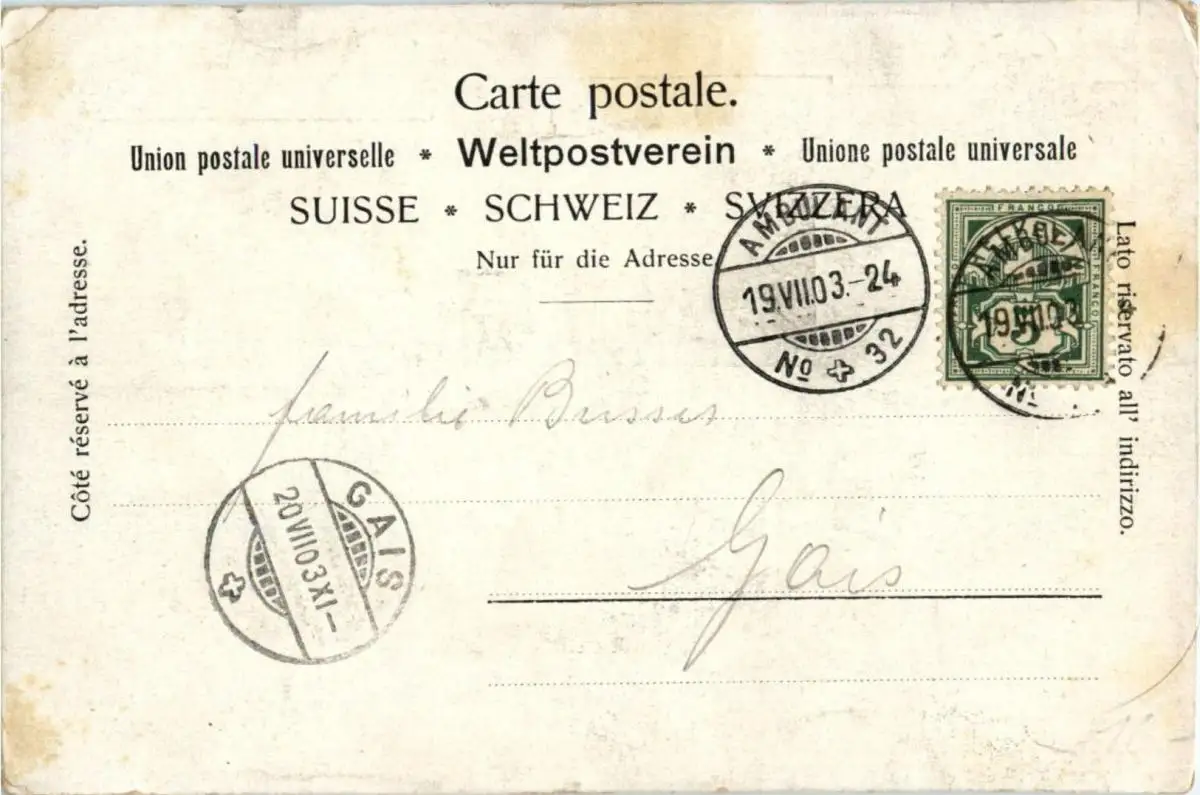 Carte postale.
Union postale universelle * Weltpostverein * Unione postale universale
SUISSE * SCHWEIZ * SVIZZERA
Nur für die Adresse
Côté réservé à l'adresse.
Lato riservato all' indirizzo.
AMBULANT
19.VII.03.-24
No 32
FRANCO
FRANCO
5
AMBULANT
19.VII.03
No
Familie
Gais
GAIS
20 VII 03 XI-